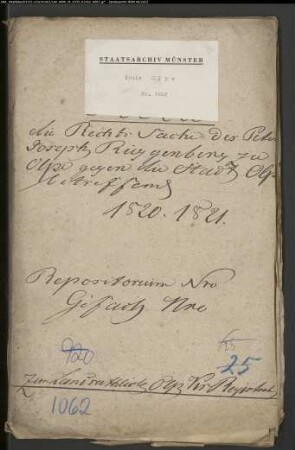 STAATSARCHIV MÜNSTER
Kreis Olpe
Nr.
die Rechts Sache des Peter
Joseph Ruggenberg zu
Olpe gegen die Stadt Olpe
betreffend
1820. 1821.
Repositorium Nro
Gefach Nro
920
25
25
Zum Landräthlich Olper
1062